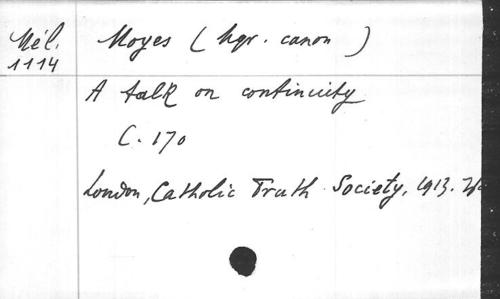 Mél. Moyes (Mgr. canon )
1114
A talk on continuity
C. 170
London, Catholic Truth Society, 1913.